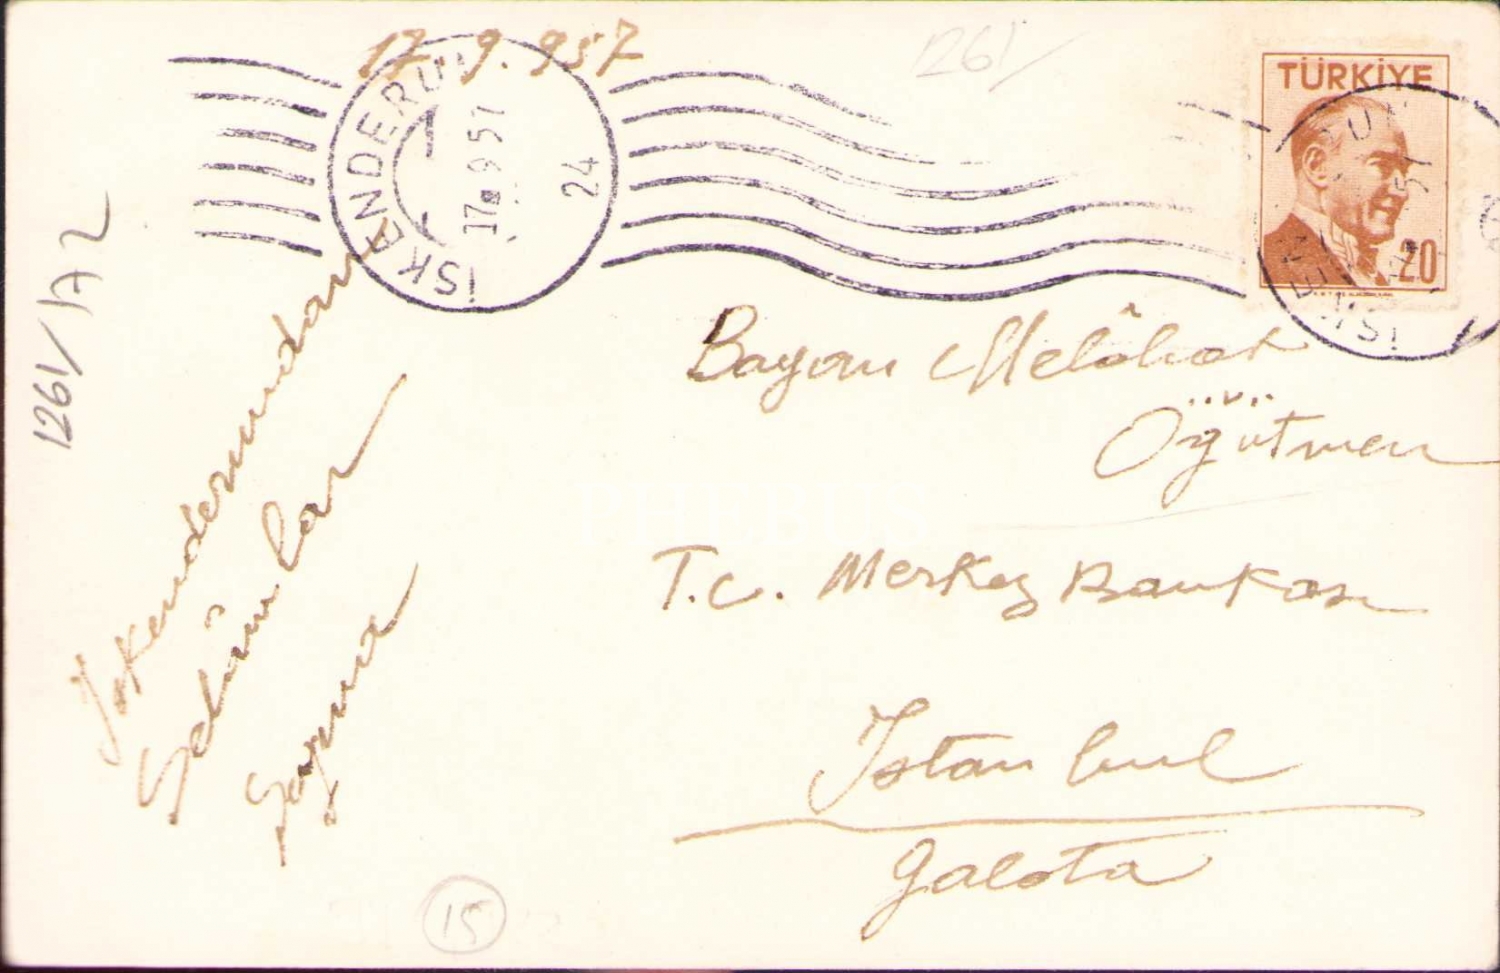 17.9.957
1261/
TÜRKİYE
20
İSKENDERUN
17 9 57
24
1261/A2
İskenderundan
Selâmlar
Bayan Melâhat
Öğütmen
T.C. Merkez Bankası
İstanbul
Galata
15
PHEBUS